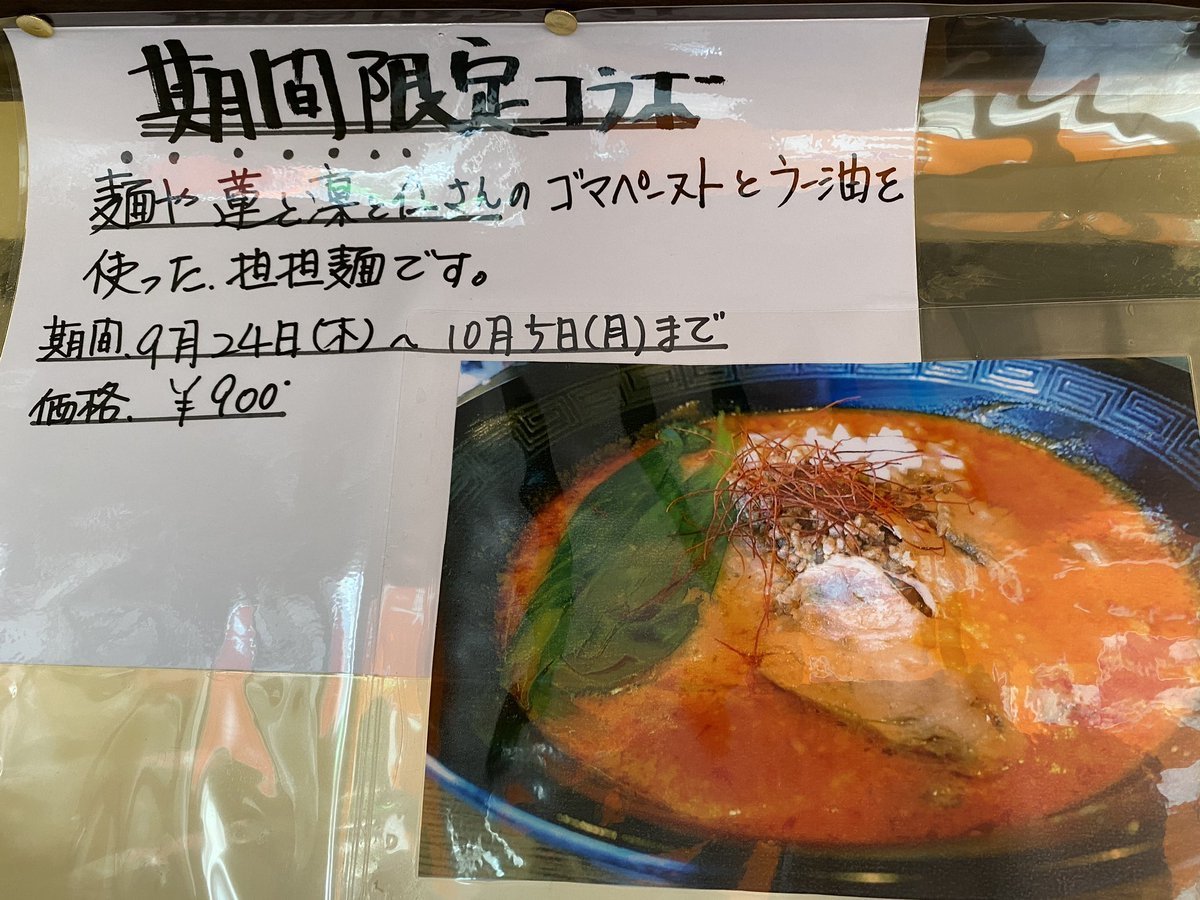 期間限定コラボ
麺や蓮と凜と仁さんのゴマペーストとラー油を
使った、担担麺です。
期間、9月24日(木)〜10月5日(月)まで
価格、¥900